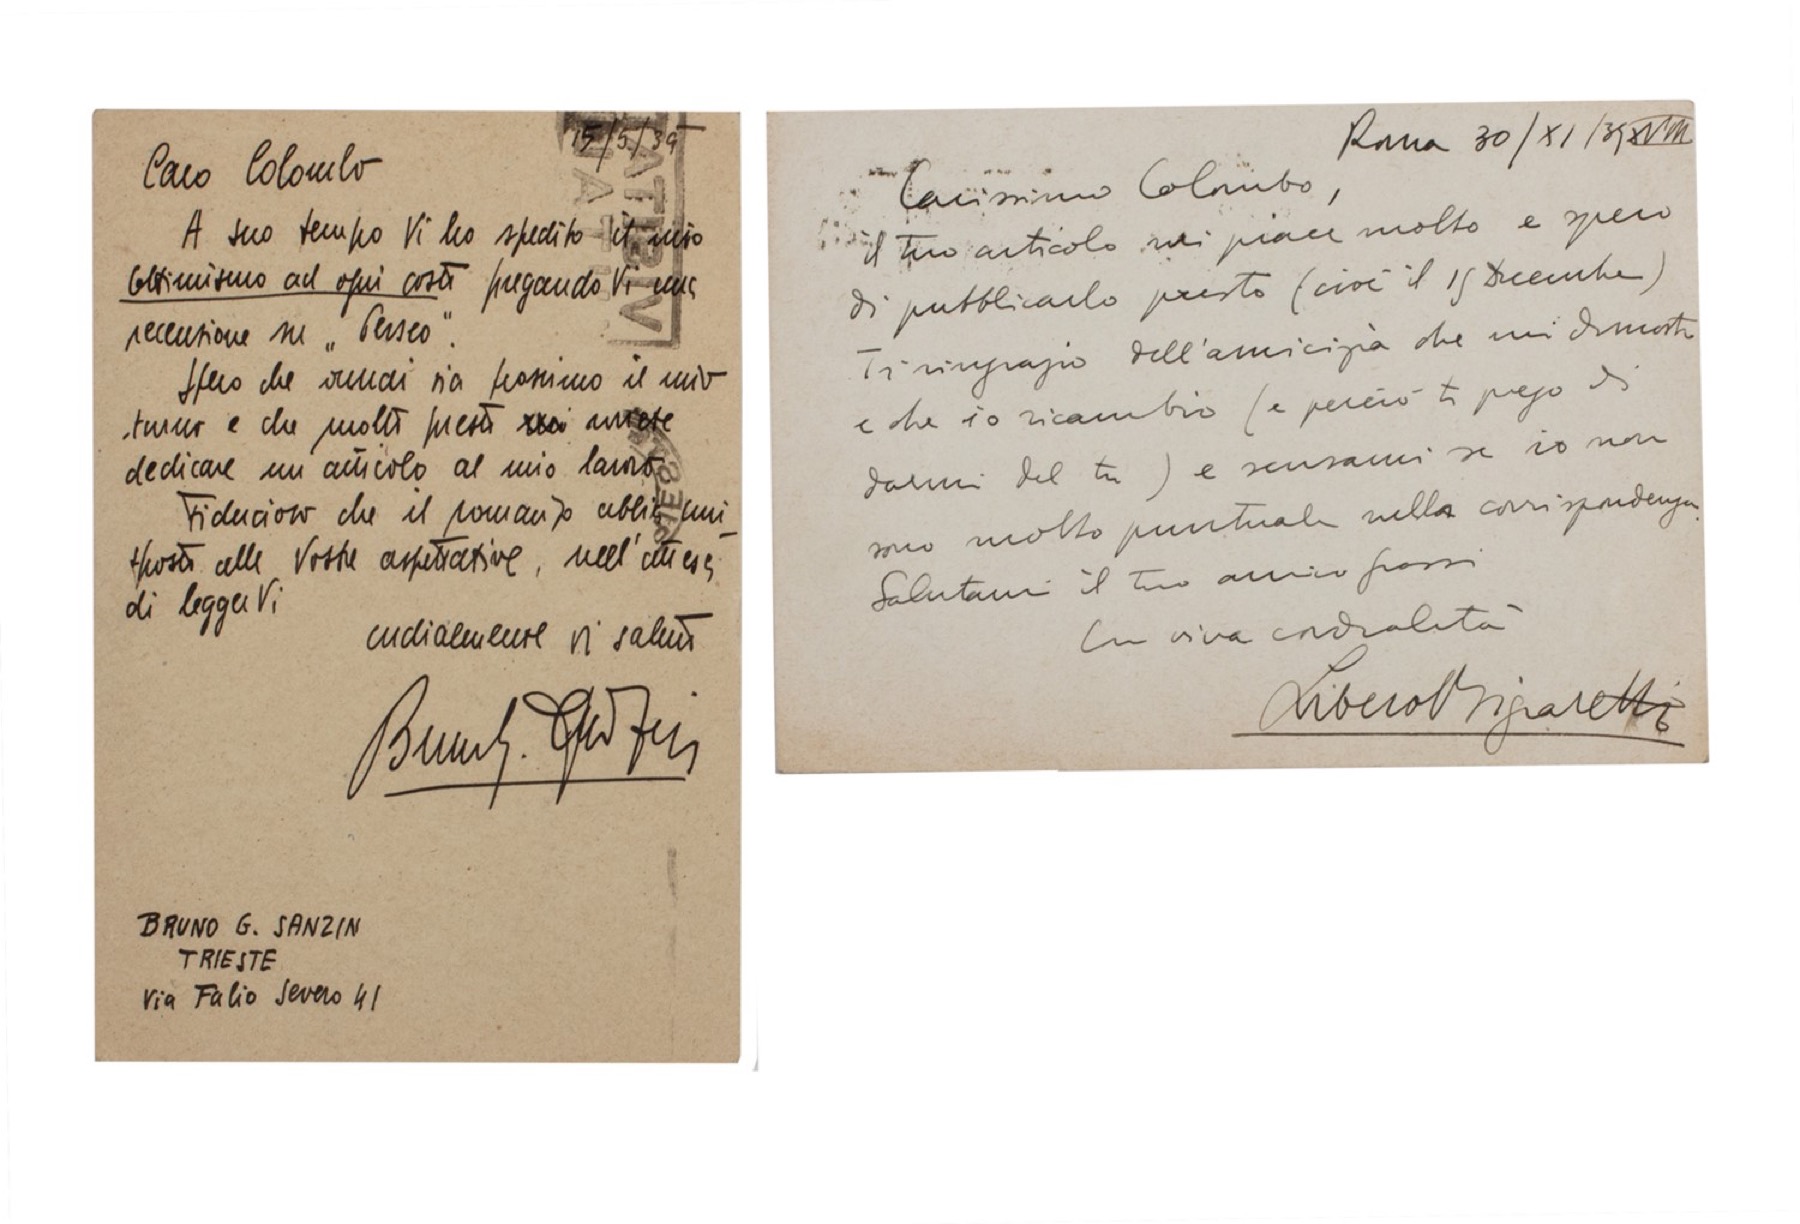 15/5/39
Caro Colombo
A suo tempo Vi ho spedito il mio
Ottimismo ad ogni costo pregandoVi una
recensione su „Perseo".
Spero che quindi sia prossimo il mio
turno e che molto presto vorrete
dedicare un articolo al mio lavoro.
Fiducioso che il romanzo abbia corri-
sposto alle Vostre aspettative, nell'attesa
di leggerVi
cordialmente Vi saluto
Bruno G. Sanzin
BRUNO G. SANZIN
TRIESTE
Via Fabio Severo 41
Roma 30/XI/39 XVIII
Carissimo Colombo,
il tuo articolo mi piace molto e spero
di pubblicarlo presto (cioè il 15 Dicembre)
Ti ringrazio dell'amicizia che mi dimostri
e che io ricambio (e perciò ti prego di
darmi del tu) e scusami se io non
sono molto puntuale nella corrispondenza.
Salutami il tuo amico Grossi
Con viva cordialità
Libero Bigiaretti